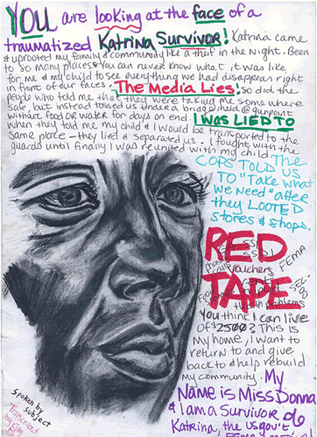 YOU are looking at the face of a
traumatized Katrina Survivor! Katrina came
& uprooted my family & community like a thief in the night. Been
to so many places & you can never know what it was like
for me & my child to see everything we had disappear right
in front of our faces. The Media Lies! So did the
people who told me that they were taking me some where
safe, but instead tossed us under a bridge held @ gunpoint
without food or water for days on end. I WAS LIED TO
when they told me my child & I would be transported to the
same place - they lied & separated us. I fought with the
guards until finally I was reunited with my child. The
COPS TOLD US
TO "Take what
we need" after
they LOOTED
stores & shops.
RED
FEMA
vouchers
TAPE
problems
You think I can live
of $2500? This is
my home, I want to
return to and give
back to & help rebuild
my community. My
Name is Miss Donna
& I am a Survivor of
Katrina, the US gov't,
Spoken by
subject
Transcribed
by